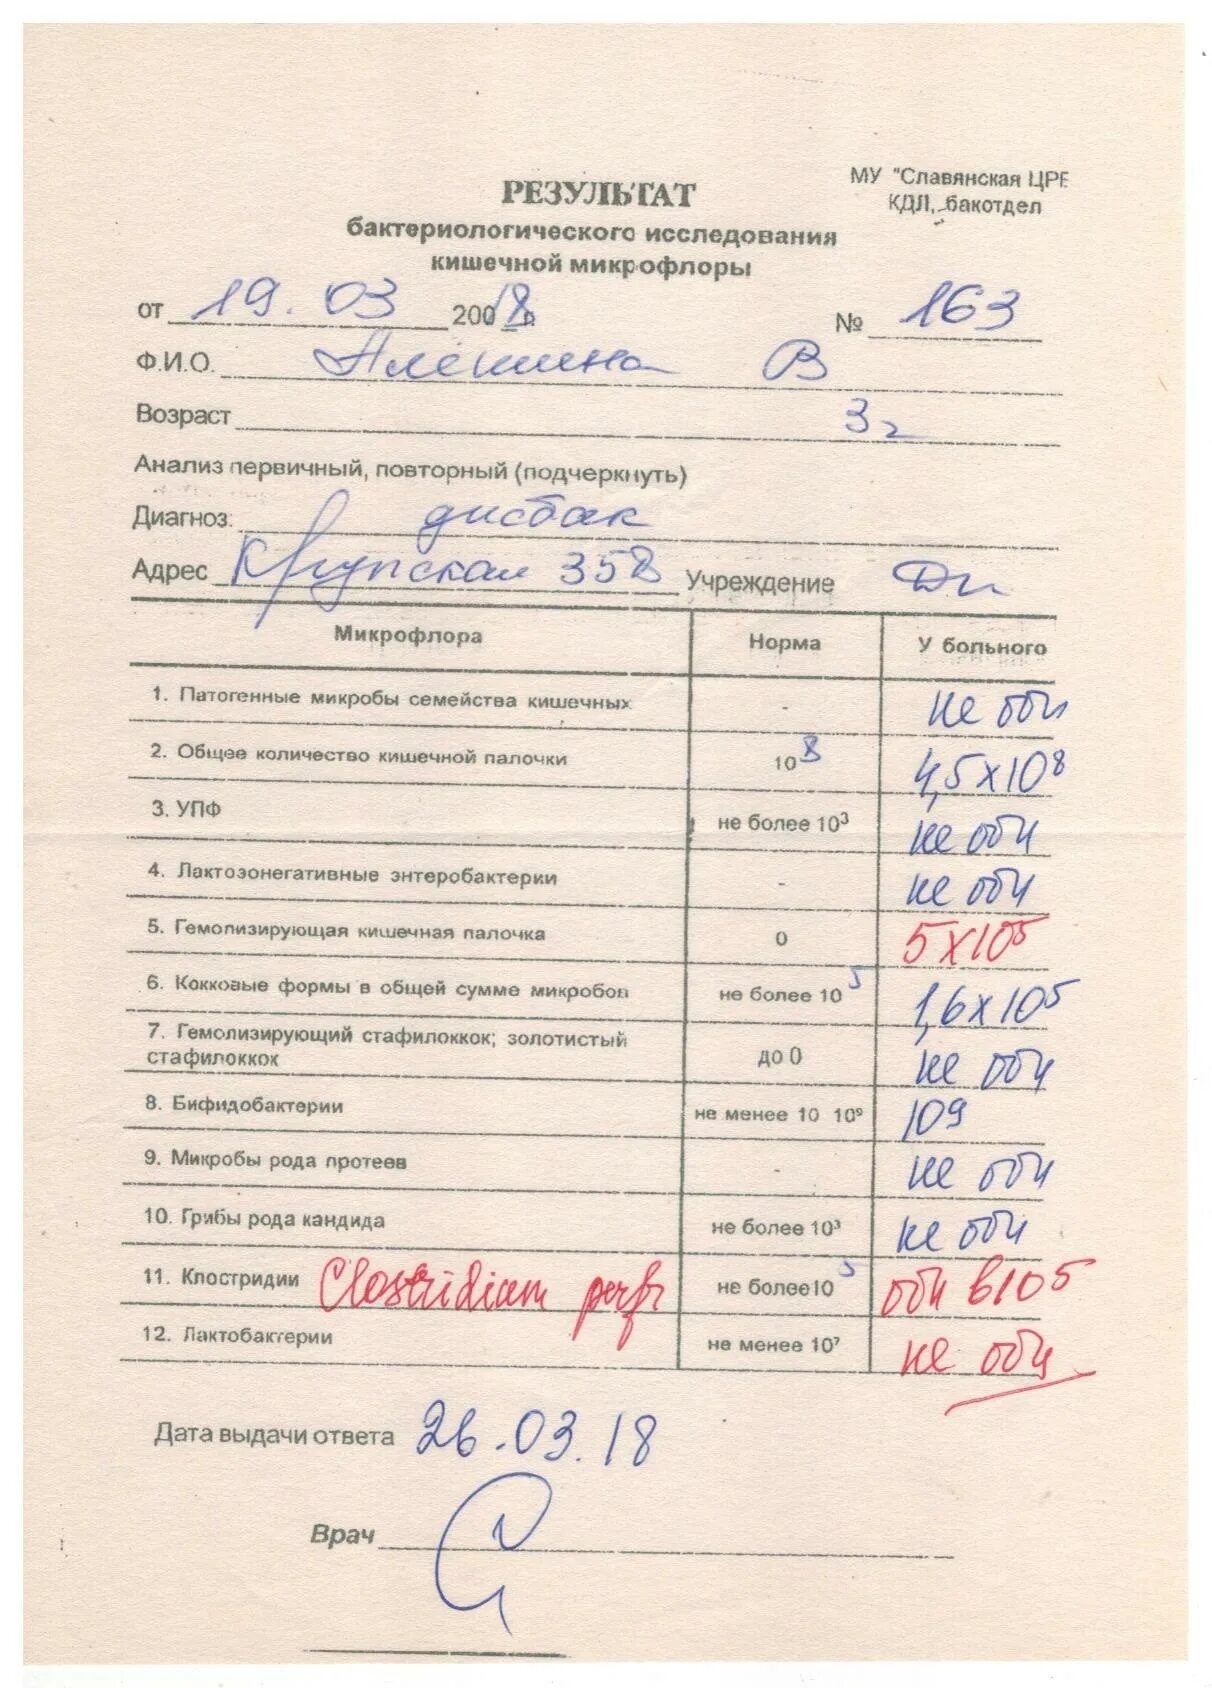 МУ "Славянская ЦРБ
КДЛ, бакотдел
РЕЗУЛЬТАТ
бактериологического исследования
кишечной микрофлоры
от 19.03 2008 г. № 163
Ф.И.О. Алёшина В
Возраст 3 г
Анализ первичный, повторный (подчеркнуть)
Диагноз: дисбак
Адрес Крупская 358 Учреждение Дп
Микрофлора Норма У больного
1. Патогенные микробы семейства кишечных - не обн
2. Общее количество кишечной палочки 10⁸ 4,5x10⁸
3. УПФ не более 10³ не обн
4. Лактозонегативные энтеробактерии - не обн
5. Гемолизирующая кишечная палочка 0 5x10⁵
6. Кокковые формы в общей сумме микробов не более 10⁵ 1,6x10⁵
7. Гемолизирующий стафилоккок; золотистый
стафилоккок до 0 не обн
8. Бифидобактерии не менее 10 10⁹ 10⁹
9. Микробы рода протеев - не обн
10. Грибы рода кандида не более 10³ не обн
11. Клостридии Clostridium perfr не более10⁵ обн в 10⁵
12. Лактобактерии не менее 10⁷ не обн
Дата выдачи ответа 26.03.18
Врач